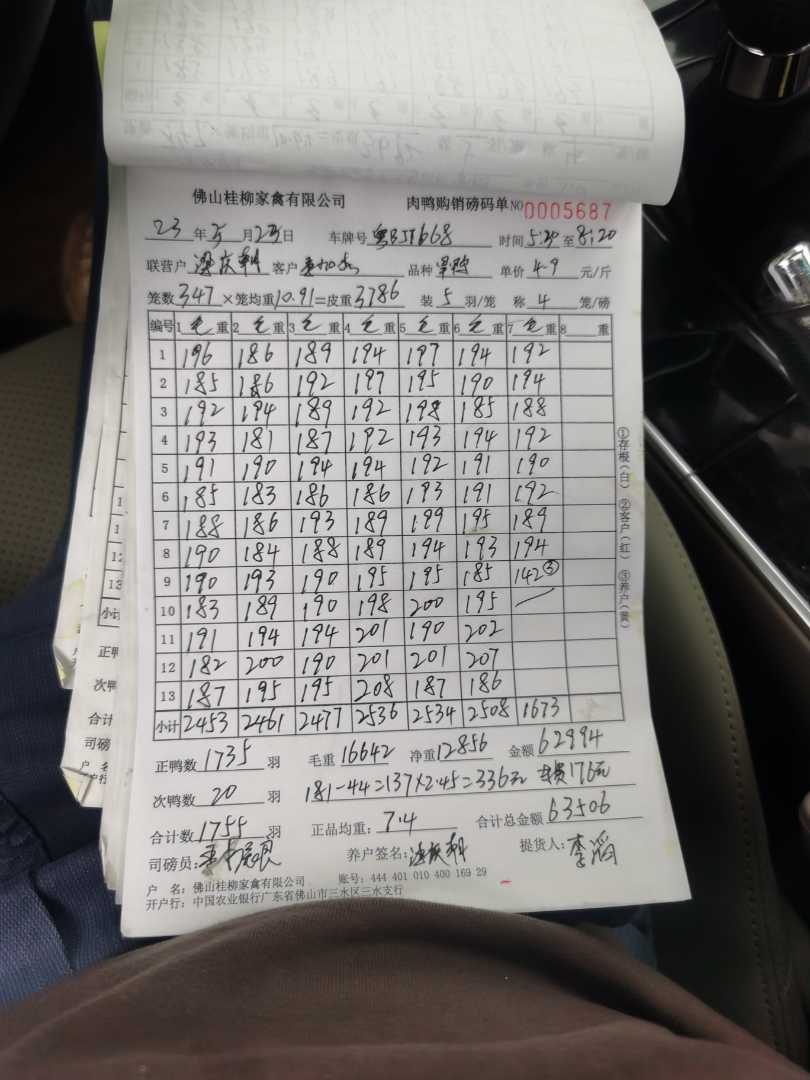 佛山桂柳家禽有限公司 肉鸭购销磅码单 NO 0005687
23 年 5 月 23 日 车牌号 粤BJ1668 时间 5:30 至 8:20
联营户 客户 品种 单价 4.9 元/斤
笼数 347 ×笼均重 10.91 =皮重 3786 装 5 羽/笼 称 4 笼/磅
编号 1 毛 重 2 毛 重 3 毛 重 4 毛 重 5 毛 重 6 毛 重 7 毛 重 8 重
1 196 186 189 194 197 194 192
2 185 186 192 197 195 190 194
3 192 194 189 192 198 185 188
4 193 181 187 192 193 194 192
5 191 190 194 194 192 191 190
6 185 183 186 186 193 191 192
7 188 186 193 189 199 195 189
8 190 184 188 189 194 193 194
9 190 193 190 195 195 185 142③
10 183 189 190 198 200 195
11 191 194 194 201 190 202
12 182 200 190 201 201 207
13 187 195 195 208 187 186
小计 2453 2461 2477 2536 2534 2508 1673
正鸭数 1735 羽 毛重 16642 净重 12856 金额 62994
次鸭数 20 羽 181-44=137×2.45=336元 车费176元
合计数 1755 羽 正品均重: 7.4 合计总金额 63506
司磅员: 养户签名: 提货人: 李滔
户 名: 佛山桂柳家禽有限公司 账号: 444 401 010 400 169 29
开户行: 中国农业银行广东省佛山市三水区三水支行
①存根(白) ②客户(红) ③养户(黄)